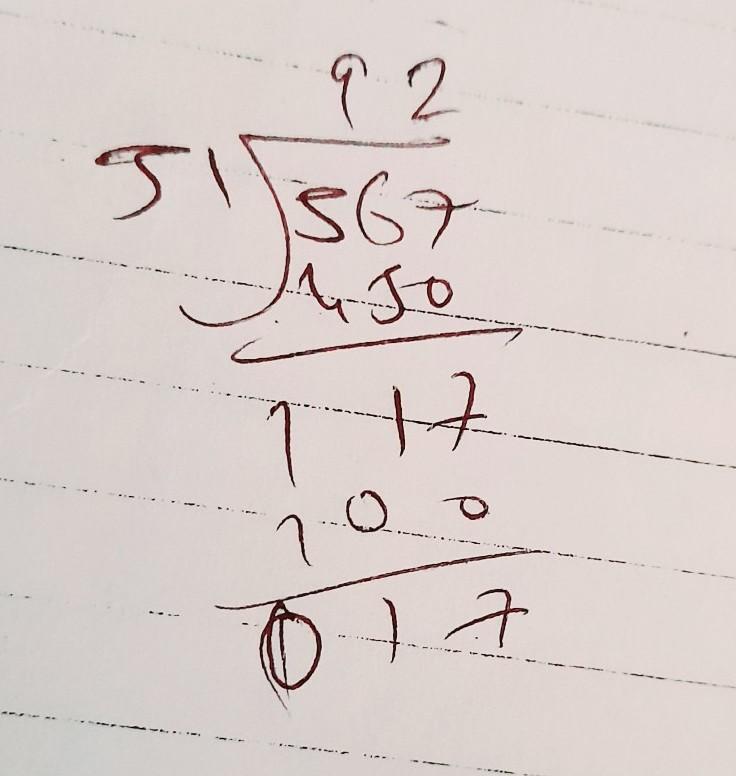 92
51 567
450
117
100
017